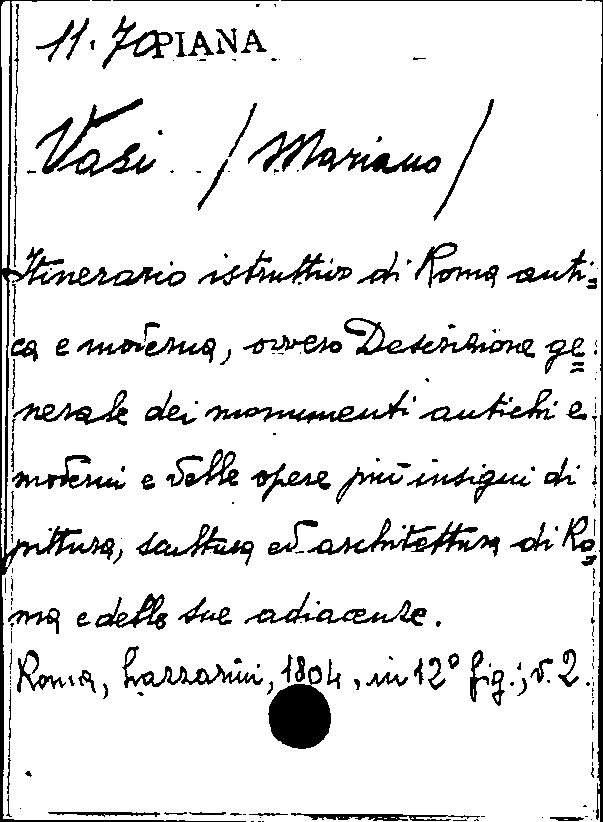 11. 70 PIANA
Vasi / Mariano /
Itinerario istruttivo di Roma anti=
ca e moderna, ovvero Descrizione ge=
nerale dei monumenti antichi e
moderni e delle opere più insigni di
pittura, scultura ed architettura di Ro=
ma e delle sue adiacenze.
Roma, Lazzarini, 1804, in 12° fig.; v. 2.